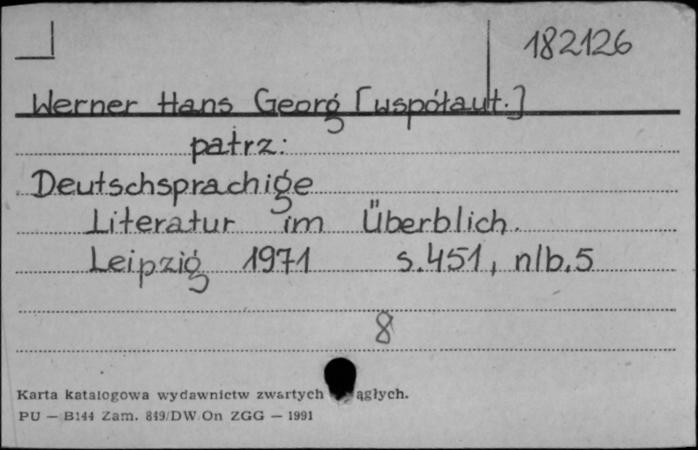 182126
Werner Hans Georg [współaut.]
patrz:
Deutschsprachige
Literatur im Überblich.
Leipzig 1971 s.451, nlb.5
8
Karta katalogowa wydawnictw zwartych ągłych.
PU — B144 Zam. 849/DW/On ZGG — 1991